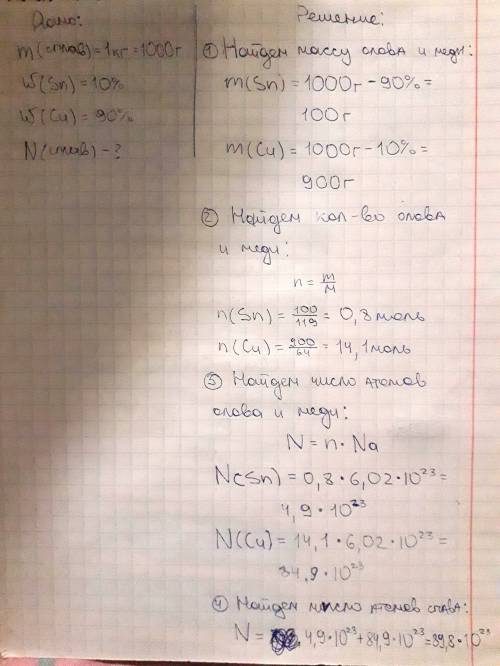 Дано:
m(сплав)=1кг=1000г
W(Sn)=10%
W(Cu)=90%
N(сплав)-?
Решение:
① Найдем массу олова и меди:
m(Sn)=1000г-90%=
100г
m(Cu)=1000г-10%=
900г
② Найдем кол-во олова
и меди:
n=m/M
n(Sn)=100/119=0,8моль
n(Cu)=900/64=14,1моль
③ Найдем число атомов
олова и меди:
N=n·Na
N(Sn)=0,8·6,02·10²³=
4,9·10²³
N(Cu)=14,1·6,02·10²³=
84,9·10²³
④ Найдем число атомов сплава:
N= 4,9·10²³+84,9·10²³=89,8·10²³